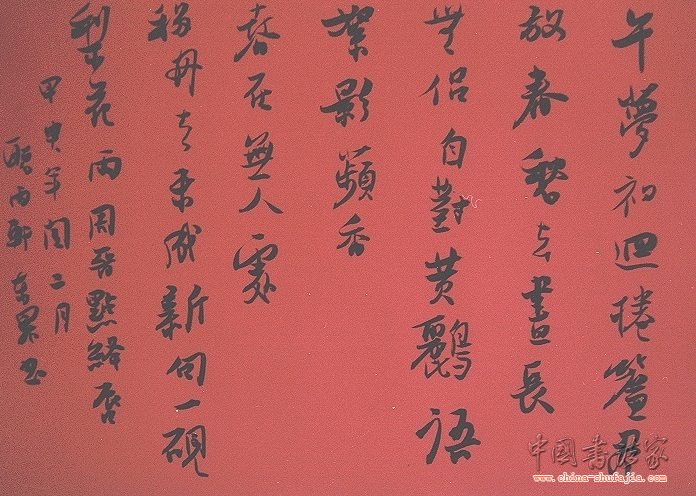 午夢初迴捲簾盡
放春愁去晝長
無侶自對黃鸝語
絮影蘋香
春在無人處
移舟去未成新句一硯
梨花雨周晉點絳唇
甲申年閏二月
軒書
中國書法家
www.china-shufajia.com